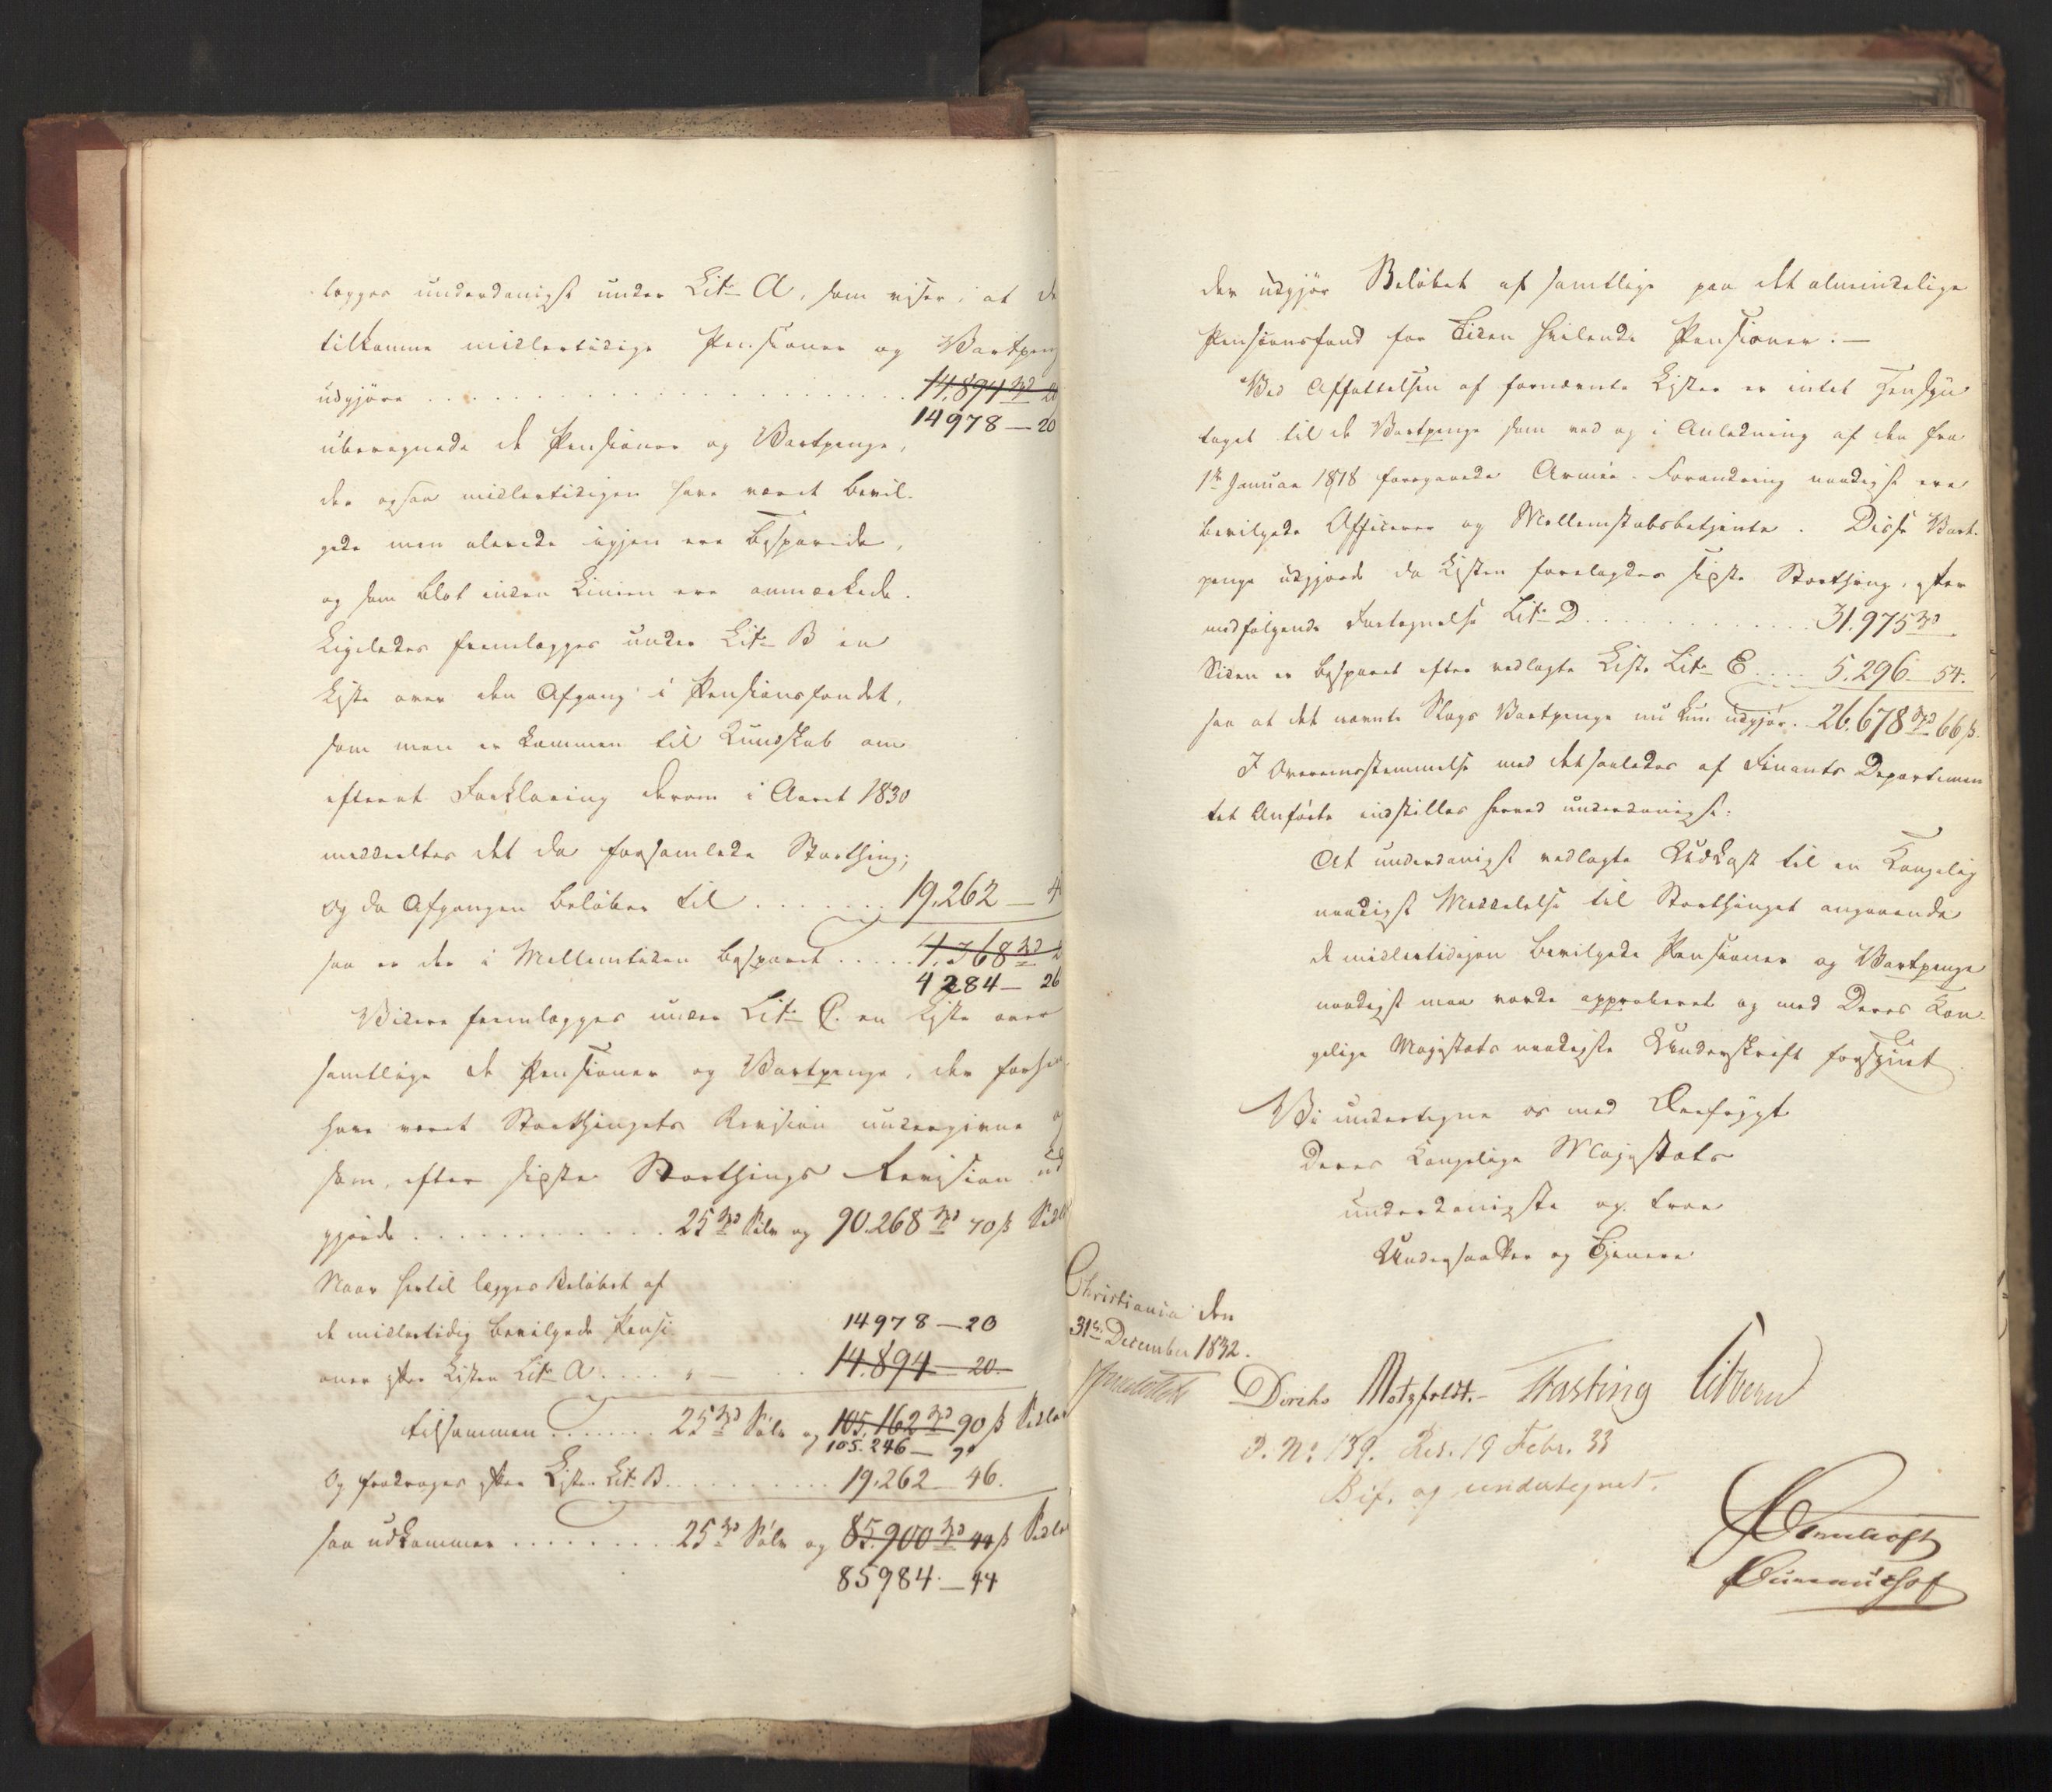 lægges underdanigst under Litr A, som viser, at de
tilkomne midlertidige Pensioner og Vartpeng
udgjøre . . . 14.894 20
14978 — 20
uberegnede de Pensioner og Vartpenge,
der ogsaa midlertidigen have været bevil-
gede men allerede igjen ere besparede,
og som blot inden Linien ere anmærkede.
Ligeledes fremlægges under Litr B en
Liste over den Afgang i Pensionsfondet,
som man er kommen til Kundskab om
efterat Forklaring derom i Aaret 1830
meddeeltes det da forsamlede Storthing;
og da Afgangen beløber til . . . 19.262 — 4
saa er der i Mellemtiden besparet . . . 4.368
4284 — 26
Videre fremlægges under Litr C. en Liste over
samtlige de Pensioner og Vartpenge, der forhen
have været Storthingets Revision undergivne og
som, efter sidste Storthings Revision ud
gjorde . . . 25 Sølv og 90.268 70 ß Sedl
Naar hertil lægges Beløbet af
de midlertidig bevilgede Pensi 14978 — 20
oner efter Listen Litr A . . . 14.894 — 20.
tilsammen . . . 25 Sølv og 105.162 90 ß Sedler
105.246 — 90
Og fradrages efter Listen Litr B . . . 19.262 — 46.
saa udkommer . . . 25 Sølv og 85.900 44 ß Sedler
85984. — 44
der udgjør Beløbet af samtlige paa det almindelige
Pensionsfond for Tiden hvilende Pensioner. —
Ved Affattelsen af fornævnte Lister er intet Hensyn
taget til de Vartpenge som ved og i Anledning af den fra
1ste Januar 1818 foregaaede Armée-Forandring naadigst ere
bevilgede Officerer og Mellemstabsbetjente. Disse Vart-
penge udgjorde da Listen forelagdes sidste Storthing, efter
medfølgende Fortegnelse Litr D . . . 31.975
Siden er besparet efter vedlagte Liste Litr E . . . 5.296 — 54.
saa at det nævnte Slags Vartpenge nu kun udgjør . 26.678 66 ß.
I Overeensstemmelse med det saaledes af Finants Departemen
tet Anførte indstilles herved underdanigst:
At underdanigst vedlagte Udkast til en Kongelig
naadigst Meddelelse til Storthinget angaaende
de midlertidigen bevilgede Pensioner og Vartpenge
naadigst maa vorde approberet og med Deres Kon-
gelige Majestæts naadigste Underskrift forsynet.
Vi undertegne os med Ærefrygt
Deres Kongelige Majestæts
underdanigste og troe
Undersaatter og Tjenere
Christiania den
31te December 1832.
Diriks Motzfeldt. Fasting Sibbern
D. No 139. Res. 19 Febr. 33
Bif. og undertegnet.